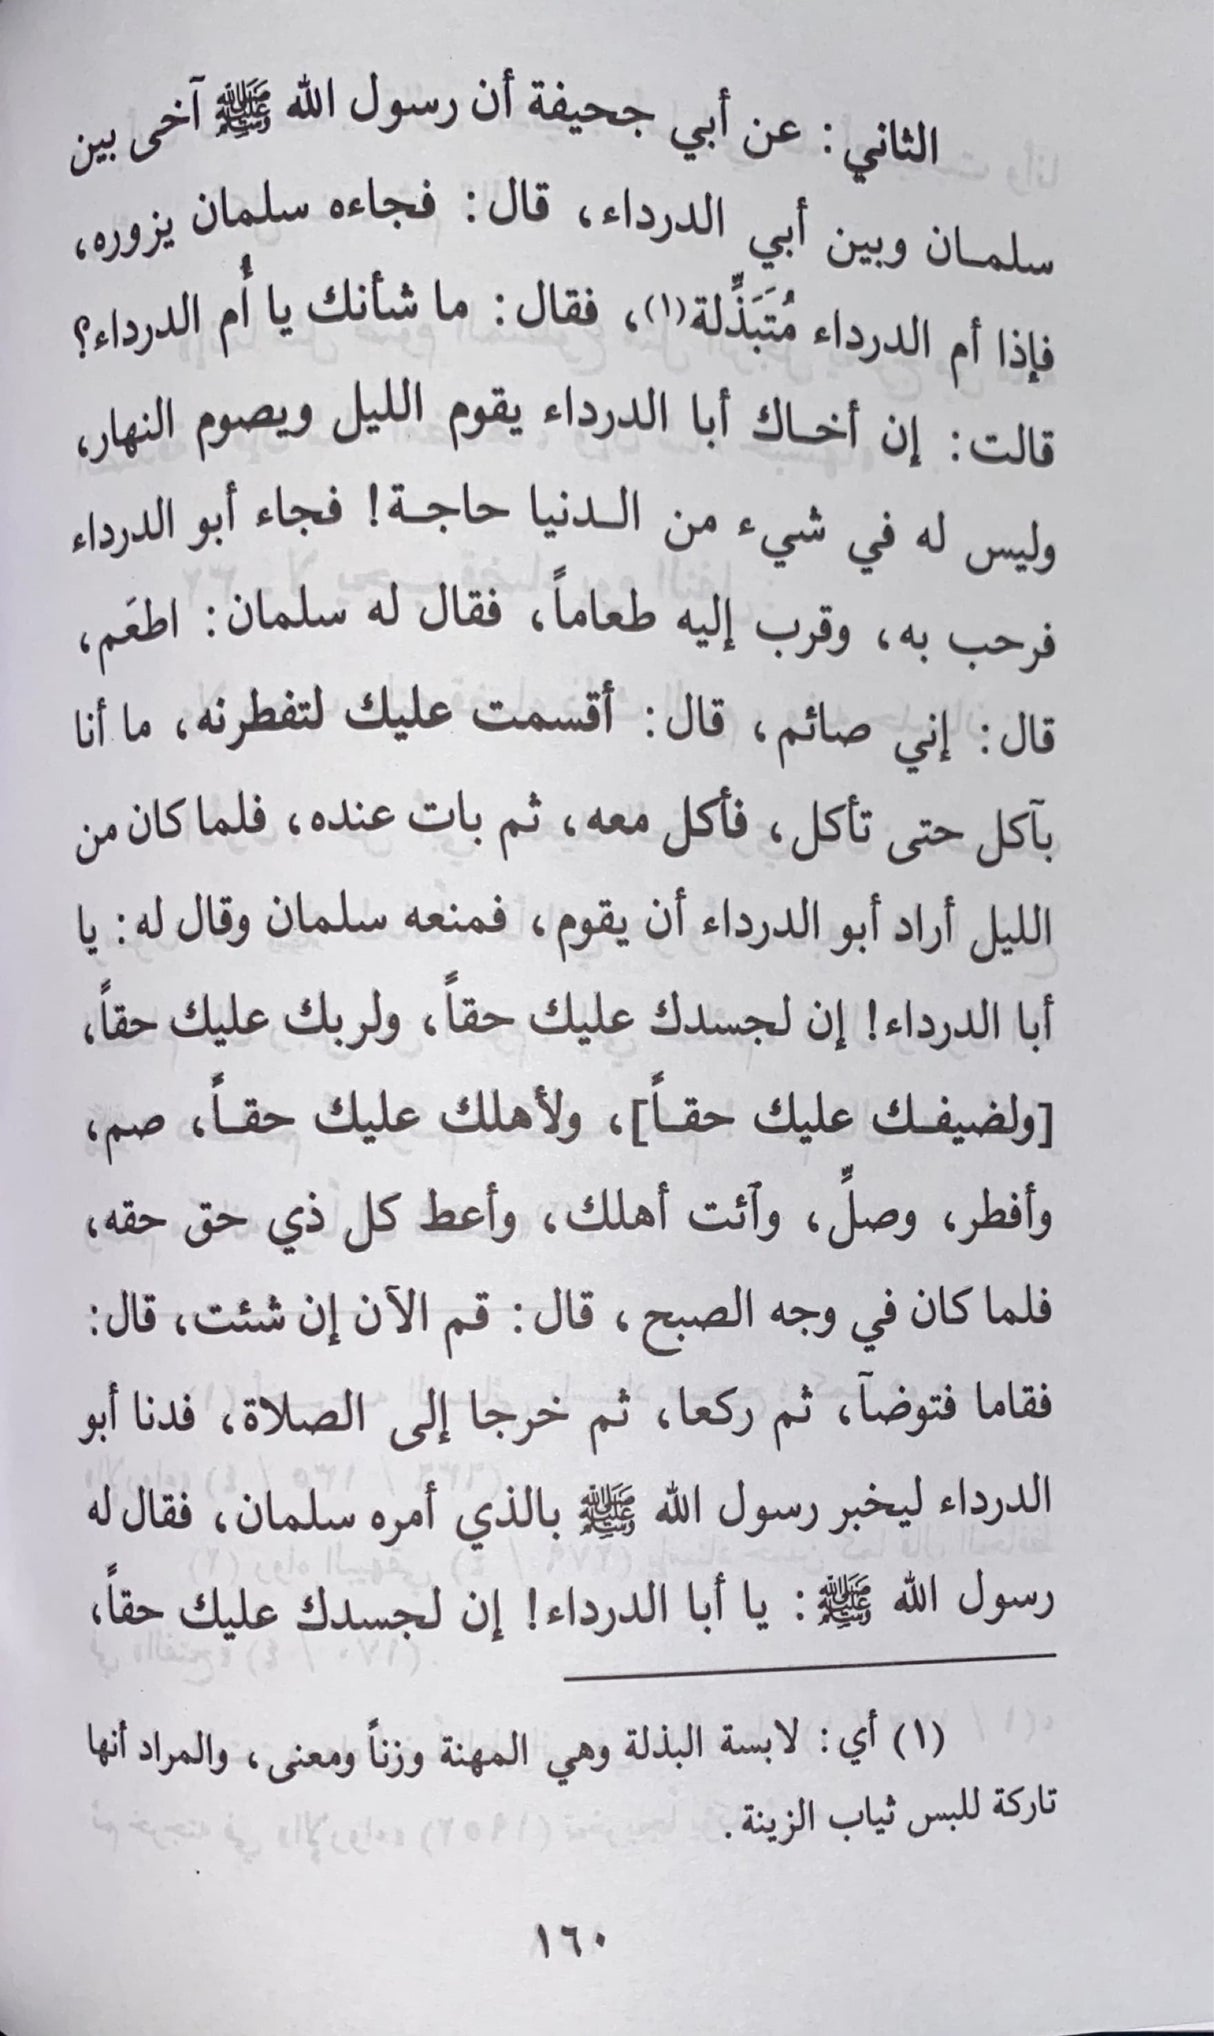 الثاني: عن أبي جحيفة أن رسول الله ﷺ آخى بين
سلمـان وبين أبي الدرداء، قال: فجاءه سلمان يزوره،
فإذا أم الدرداء مُتَبَذِّلة(١)، فقال: ما شأنك يا أُم الدرداء؟
قالت: إن أخـاك أبا الدرداء يقوم الليل ويصوم النهار،
وليس له في شيء من الـدنيا حاجـة! فجاء أبو الدرداء
فرحب به، وقرب إليه طعاماً، فقال له سلمان: اطعَم،
قال: إني صائم، قال: أقسمت عليك لتفطرنه، ما أنا
بآكل حتى تأكل، فأكل معه، ثم بات عنده، فلما كان من
الليل أراد أبو الدرداء أن يقوم، فمنعه سلمان وقال له: يا
أبا الدرداء! إن لجسدك عليك حقاً، ولربك عليك حقاً،
[ولضيفـك عليك حقـاً]، ولأهلك عليك حقـاً، صم،
وأفطر، وصلِّ، وٱئت أهلك، وأعط كل ذي حق حقه،
فلما كان في وجه الصبح، قال: قم الآن إن شئت، قال:
فقاما فتوضآ، ثم ركعا، ثم خرجا إلى الصلاة، فدنا أبو
الدرداء ليخبر رسول الله ﷺ بالذي أمره سلمان، فقال له
رسول الله ﷺ: يا أبا الدرداء! إن لجسدك عليك حقاً،
(١) أي: لابسة البذلة وهي المهنة وزناً ومعنى، والمراد أنها
تاركة للبس ثياب الزينة.
١٦٠